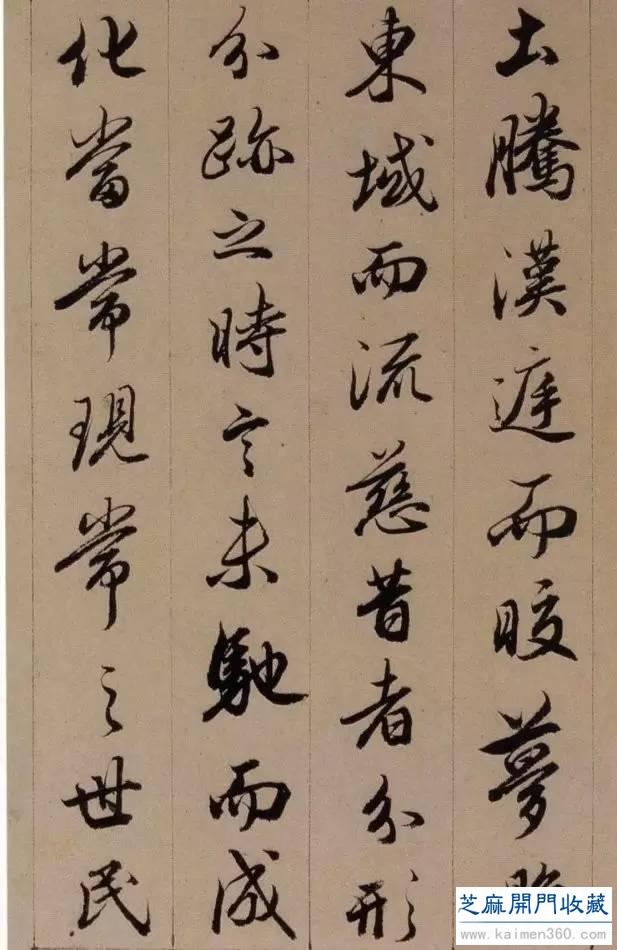 土騰漢庭而皎夢
東域而流慈昔者分形
分跡之時言未馳而成
化當常現常之世民
芝麻開門收藏
www.kaimen360.com